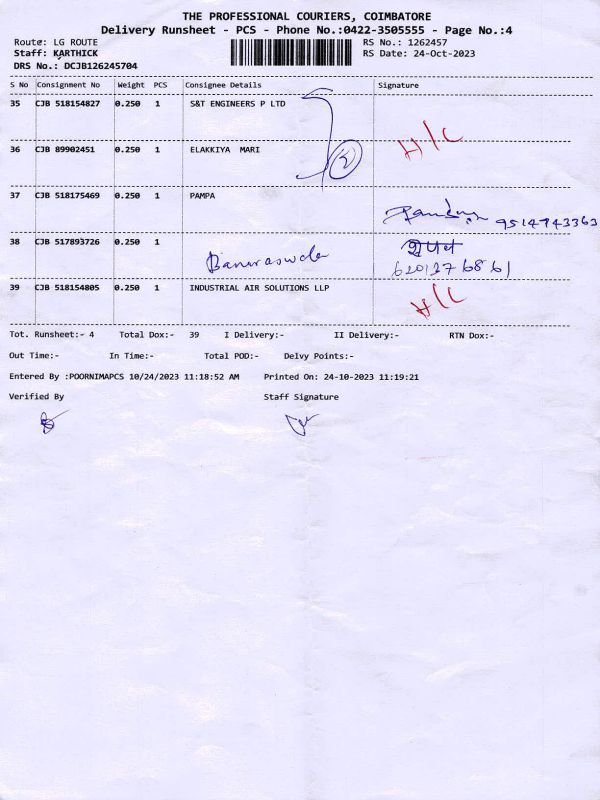 THE PROFESSIONAL COURIERS, COIMBATORE
Delivery Runsheet - PCS - Phone No.:0422-3505555 - Page No.:4
Route: LG ROUTE RS No.: 1262457
Staff: KARTHICK RS Date: 24-Oct-2023
DRS No.: DCJB126245704
S No Consignment No Weight PCS Consignee Details Signature
35 CJB 518154827 0.250 1 S&T ENGINEERS P LTD
36 CJB 89902451 0.250 1 ELAKKIYA MARI H/C
2
37 CJB 518175469 0.250 1 PAMPA
9514743363
38 CJB 517893726 0.250 1
6201276861
39 CJB 518154805 0.250 1 INDUSTRIAL AIR SOLUTIONS LLP H/C
Tot. Runsheet:- 4 Total Dox:- 39 I Delivery:- II Delivery:- RTN Dox:-
Out Time:- In Time:- Total POD:- Delvy Points:-
Entered By :POORNIMAPCS 10/24/2023 11:18:52 AM Printed On: 24-10-2023 11:19:21
Verified By Staff Signature